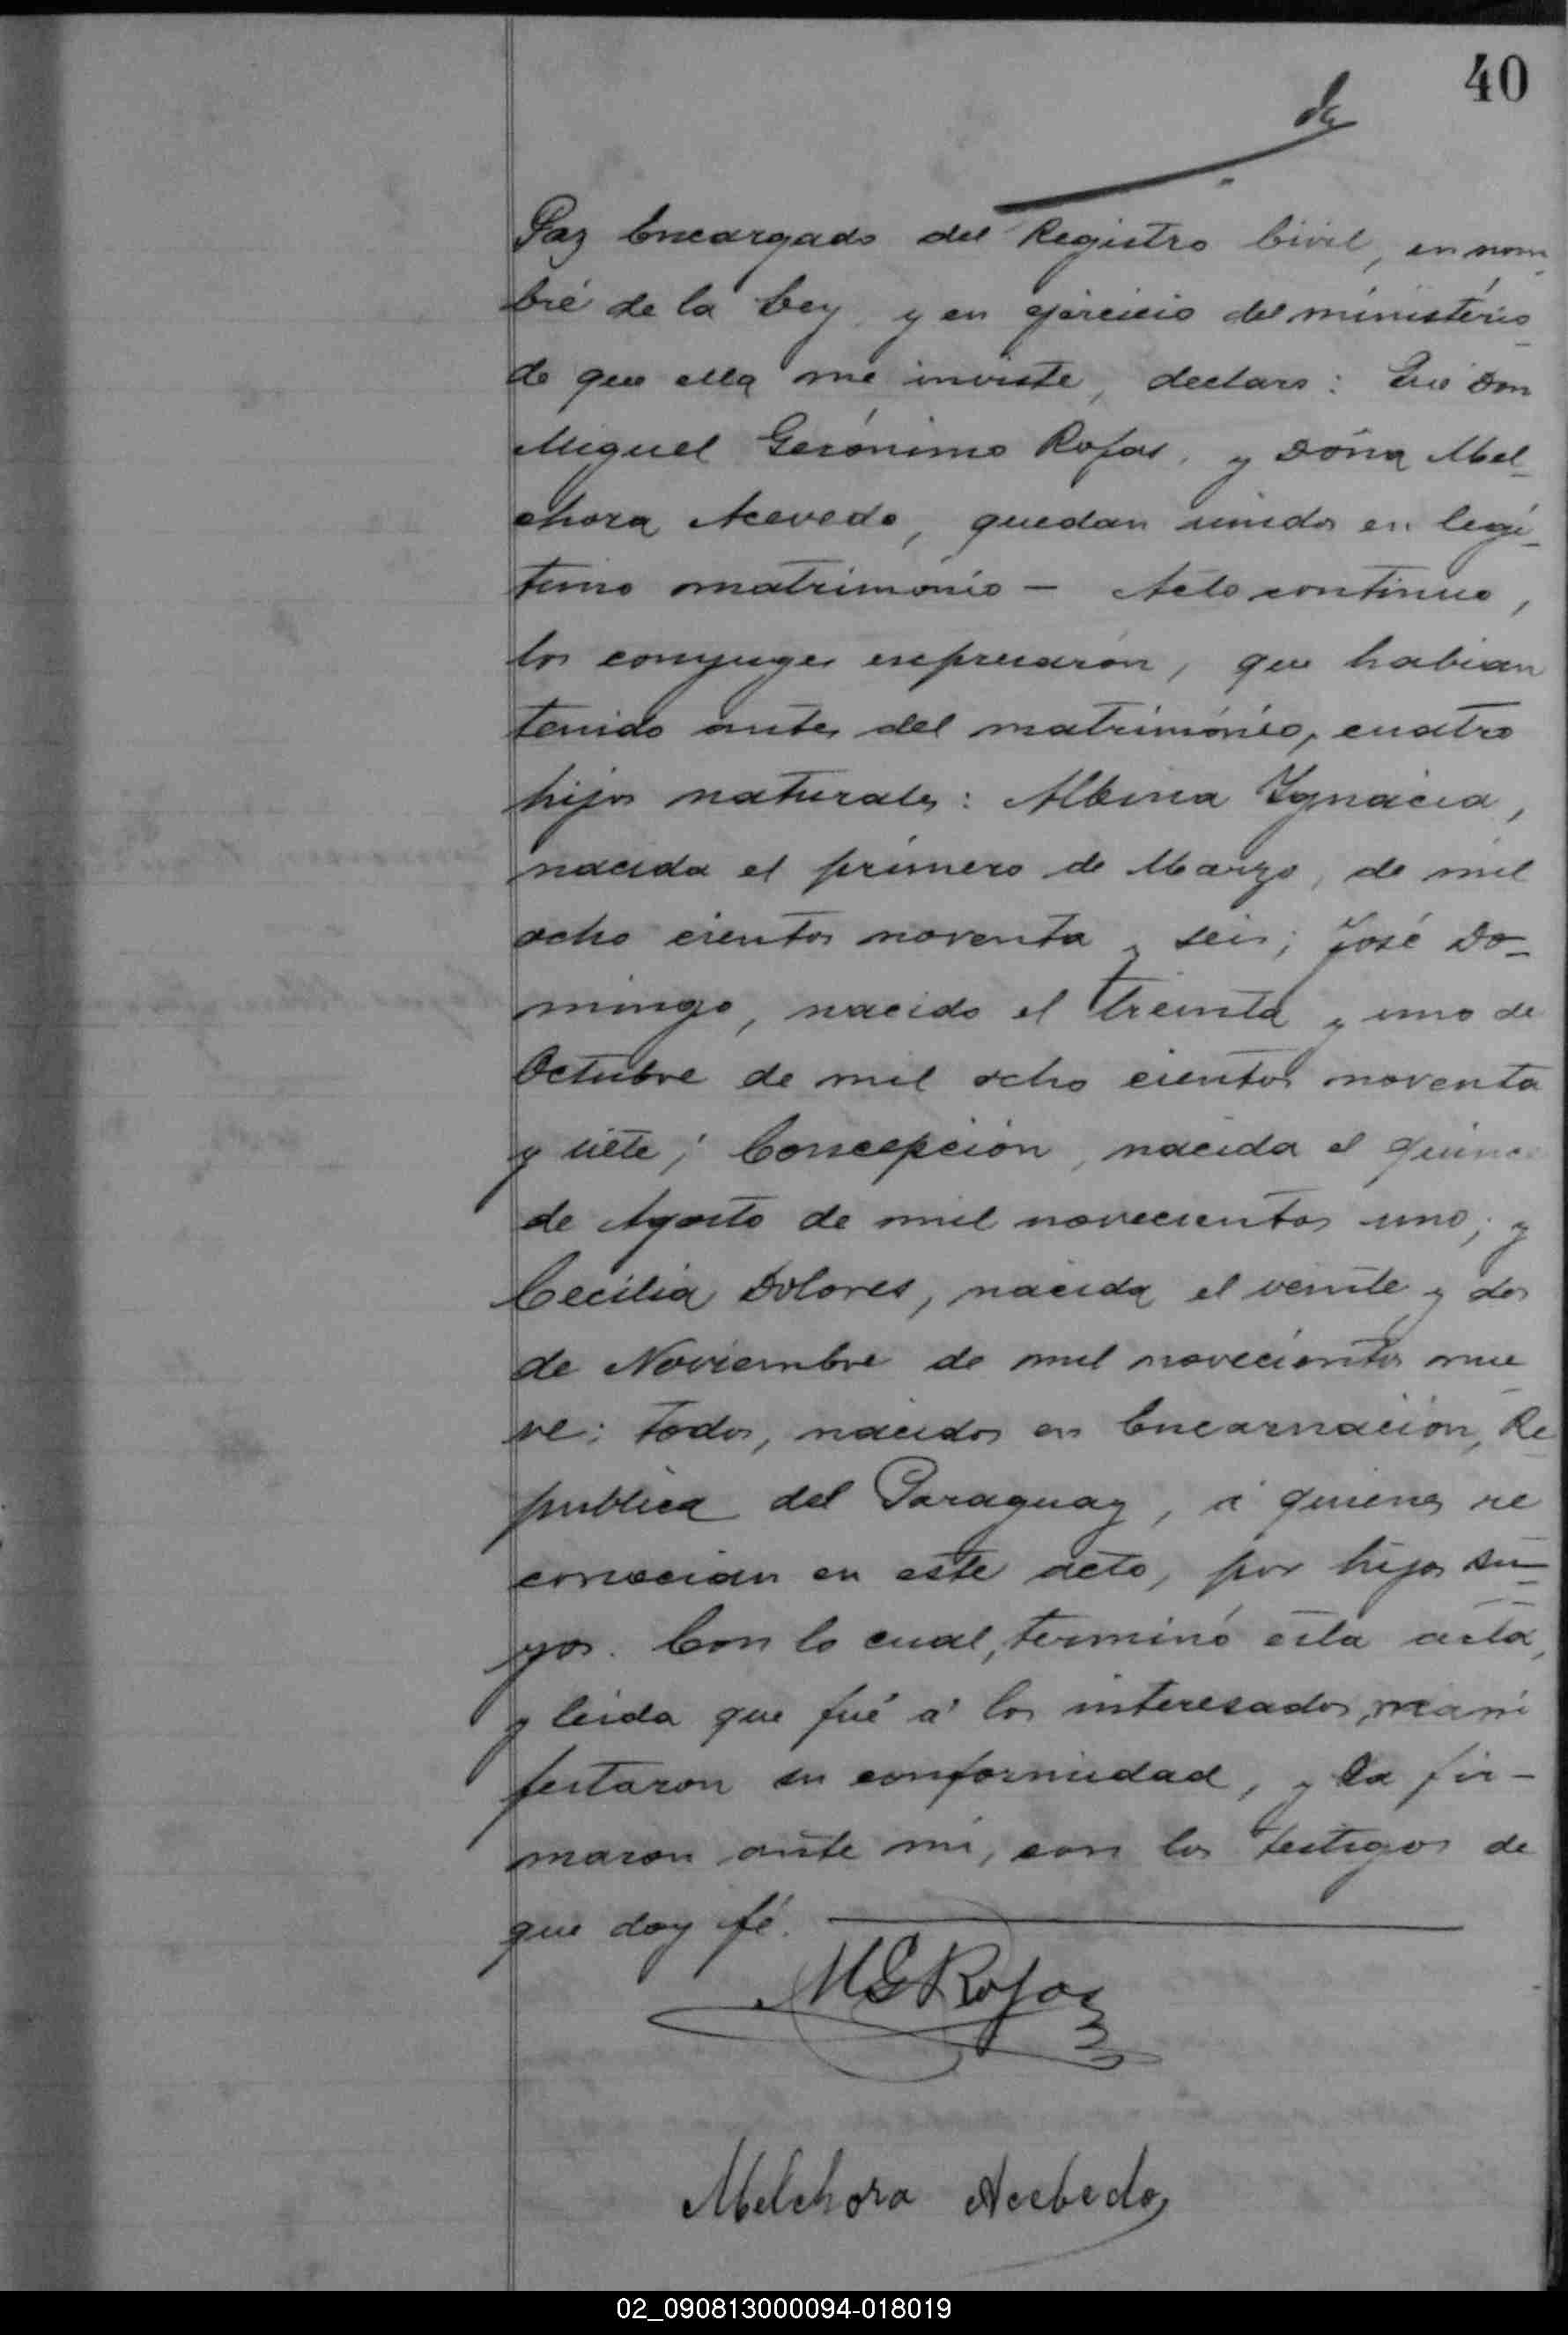 40
Paz Encargado del Registro Civil, en nom
bre de la Ley y en ejercicio del ministerio
de que ella me inviste, declaro: Que Don
Miguel Gerónimo Rojas, y Doña Mel-
chora Acevedo, quedan unidos en legí-
timo matrimonio – Acto continuo,
los conyuges expresaron, que habian
tenido antes del matrimonio, cuatro
hijos naturales: Albina Ygnacia,
nacida el primero de Marzo, de mil
ocho cientos noventa y seis; José Do-
mingo, nacido el treinta y uno de
Octubre de mil ocho cientos noventa
y siete; Concepción, nacida el quince
de Agosto de mil novecientos uno; y
Cecilia Dolores, nacida el veinte y dos
de Noviembre de mil novecientos nue
ve; todos, nacidos en Encarnación, Re
publica del Paraguay, á quienes re
conocian en este acto, por hijos su-
yos. Con lo cual, terminó esta acta,
y leida que fué á los interesados, mani
festaron su conformidad, y la fir-
maron ante mi, con los testigos de
que doy fé.
MGRojas
Melchora Acebedo
02_090813000094-018019